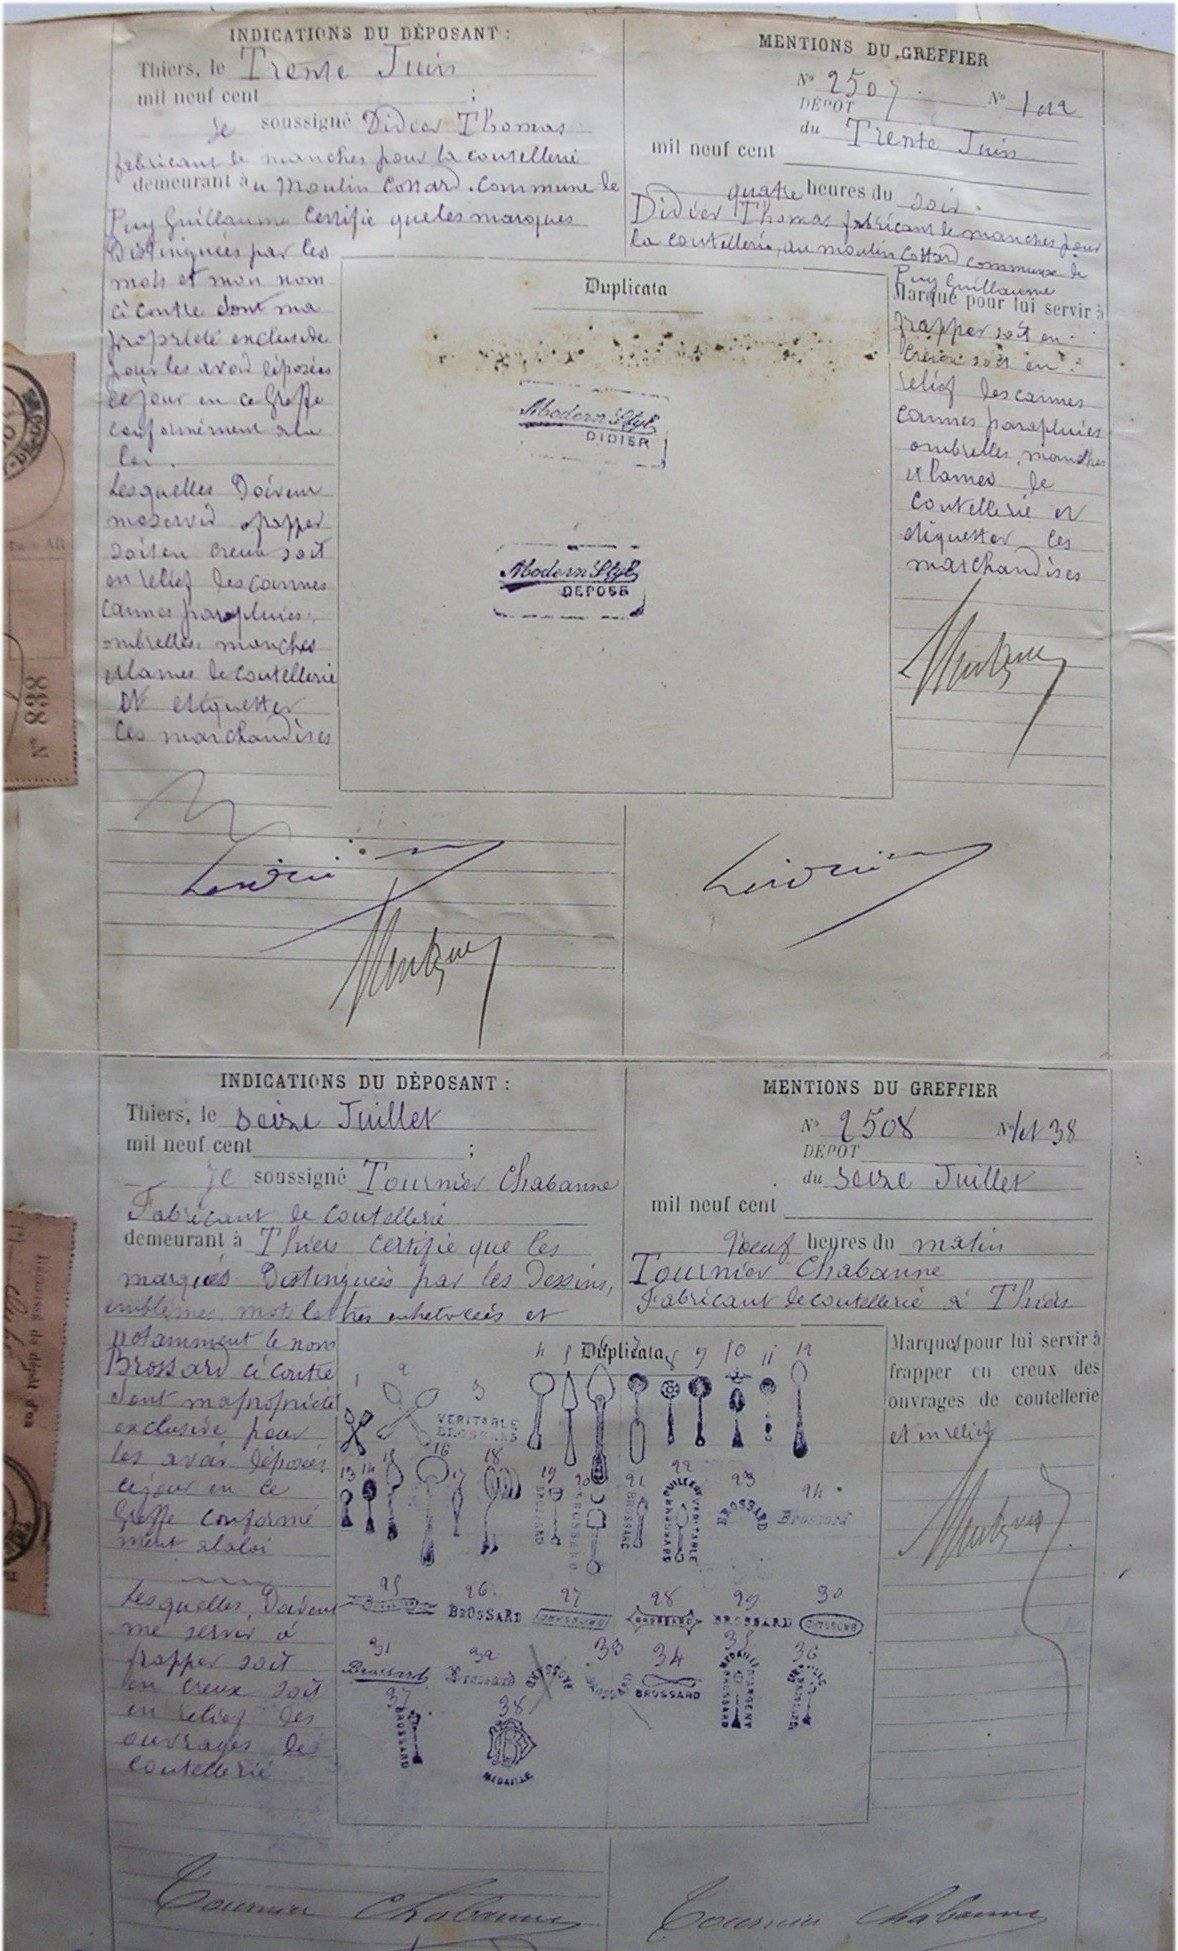 INDICATIONS DU DÉPOSANT :
Thiers, le Trente Juin
mil neuf cent ;
Je soussigné Didier Thomas
fabricant de manches pour la coutellerie
demeurant à u Moulin Cottard. Commune de
Puy Guillaume Certifie que les marques
Distinguées par les
mots et mon nom
ci contre sont ma
propriété exclusive
pour les avoir déposées
ce jour en ce Greffe
conformément a la
loi.
Lesquelles Doivent
me servir frapper
soit en creux soit
en relief les cannes
cannes parapluies,
ombrelles, manches
et lames de coutellerie
et etiquetter
ces marchandises
MENTIONS DU GREFFIER
N° 2507 N° 1 et 2
DÉPÔT
du Trente Juin
mil neuf cent
quatre heures du soir.
Didier Thomas, fabricant de manches pour
la coutellerie, au moulin Cottard commune de
Puy Guillaume
Marque pour lui servir à
frapper soit en
creux soit en
relief les cannes
cannes parapluies
ombrelles, manches
et lames de
coutellerie et
etiquetter ces
marchandises
Duplicata
Modern Styl
DIDIER
Modern Styl
DEPOSE
N° 838
INDICATIONS DU DÉPOSANT :
Thiers, le seize Juillet
mil neuf cent ;
Je soussigné Tournier Chabanne
Fabricant de coutellerie
demeurant à Thiers certifie que les
marques Distinguées par les Dessins,
emblèmes, mots lettres et
notamment le nom
Brossard ci contre
sont ma propriété
exclusive pour
les avoir déposées
ce jour en ce
Greffe conformé
ment a la loi
Lesquelles, Doivent
me servir à
frapper soit
en creux soit
en relief des
ouvrages de
coutellerie
MENTIONS DU GREFFIER
N° 2508 N° 1 et 38
DÉPÔT
du seize Juillet
mil neuf cent
Neuf heures du matin
Tournier Chabanne
Fabricant de coutellerie à Thiers
Marques pour lui servir à
frapper en creux des
ouvrages de coutellerie
et en relief
Duplicata
1 2 3 4 5 8 9 10 11 12
VERITABLE
BROSSARD
13 14 15 16 17 18 19 20 21 22 23 24
BROSSARD
BROSSARD
BROSSARD
CUILLER VERITABLE
BROSSARD
BROSSARD
Brossard
25 26 27 28 29 30
BROSSARD
BROSSARD
BROSSARD
BROSSARD
31 32 33 34 35 36
Brossard
Brossard
BROSSARD
MEDAILLE D'ARGENT
BROSSARD
37 38
BROSSARD
MEDAILLE
Tournier Chabanne
Tournier Chabanne